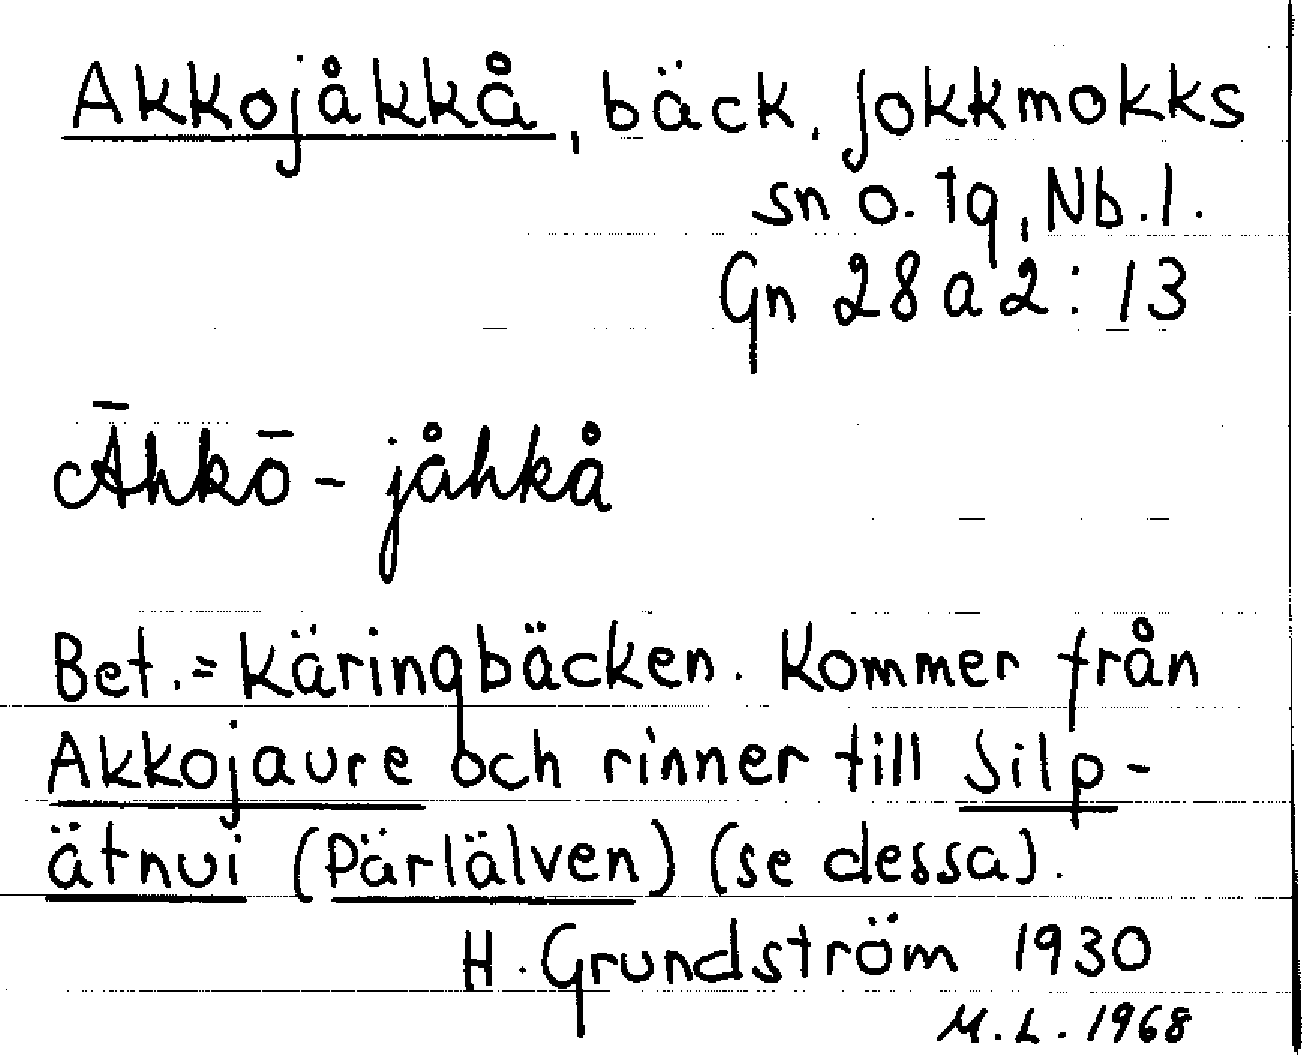 Akkojåkkå, bäck. Jokkmokks
sn o. tg, Nb.l.
Gn 28 a 2:13
Āhkō-jåhkå
Bet.= Käringbäcken. Kommer från
Akkojaure och rinner till Silp-
ätnui (Pärlälven) (se dessa).
H. Grundström 1930
M.L. 1968